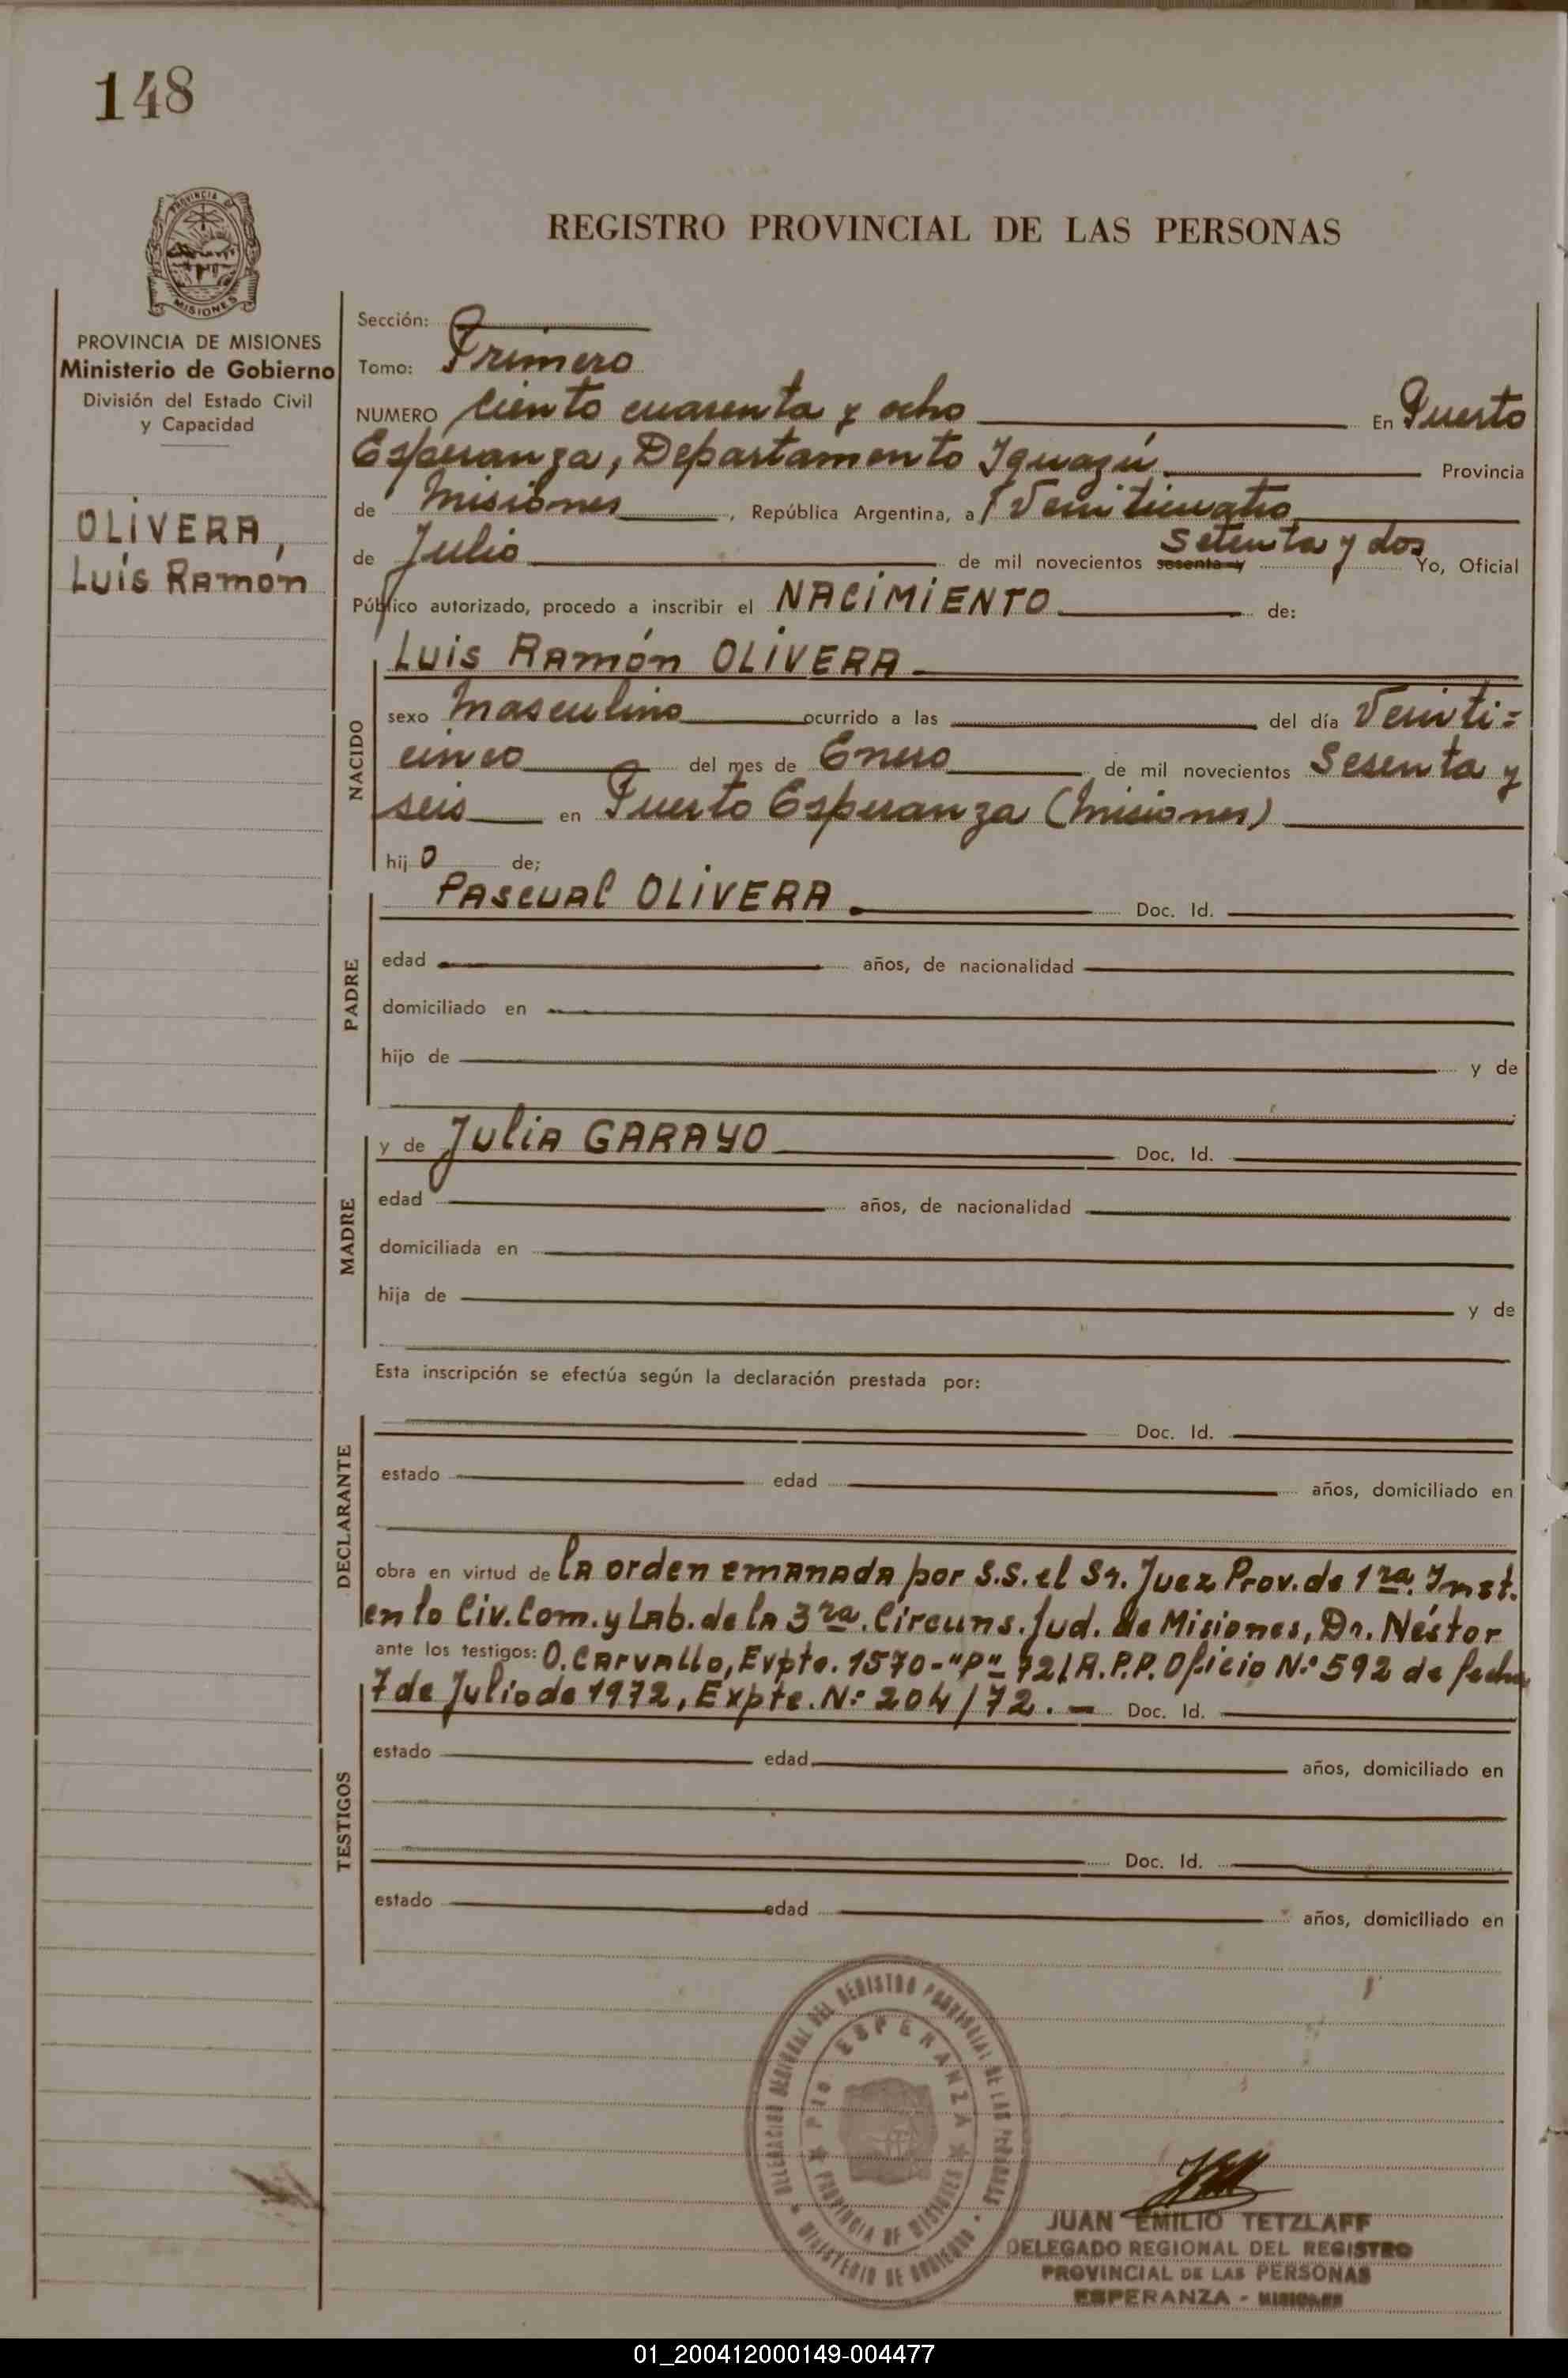 148
PROVINCIA DE
MISIONES
REGISTRO PROVINCIAL DE LAS PERSONAS
PROVINCIA DE MISIONES
Ministerio de Gobierno
División del Estado Civil
y Capacidad
OLIVERA,
Luis Ramón
Sección:
Tomo: Primero
NUMERO Ciento cuarenta y ocho En Puerto
Esperanza, Departamento Iguazú Provincia
de Misiones, República Argentina, a Veinticuatro
de Julio de mil novecientos sesenta y setenta y dos Yo, Oficial
Público autorizado, procedo a inscribir el NACIMIENTO de:
NACIDO
Luis Ramón OLIVERA
sexo Masculino ocurrido a las del día Veinti=
cinco del mes de Enero de mil novecientos Sesenta y
seis en Puerto Esperanza (Misiones)
hijo de;
PADRE
Pascual OLIVERA. Doc. Id.
edad años, de nacionalidad
domiciliado en
hijo de y de
MADRE
y de Julia GARAYO Doc. Id.
edad años, de nacionalidad
domiciliada en
hija de y de
Esta inscripción se efectúa según la declaración prestada por:
DECLARANTE
Doc. Id.
estado edad años, domiciliado en
obra en virtud de la orden emanada por S.S. el Sr. Juez Prov. de 1ra. Inst.
en lo Civ. Com. y Lab. de la 3ra. Circuns. Jud. de Misiones, Dr. Néstor
ante los testigos: O. Carvallo, Expte. 1570-"P"-72/A.P.P. Oficio N° 592 de fecha
7 de Julio de 1972, Expte. N° 204/72.- Doc. Id.
TESTIGOS
estado edad años, domiciliado en
Doc. Id.
estado edad años, domiciliado en
DELEGACION REGIONAL DEL REGISTRO PROVINCIAL DE LAS PERSONAS
MINISTERIO DE GOBIERNO
PTO. ESPERANZA
PROVINCIA DE MISIONES
JUAN EMILIO TETZLAFF
DELEGADO REGIONAL DEL REGISTRO
PROVINCIAL DE LAS PERSONAS
ESPERANZA - MISIONES
01_200412000149-004477